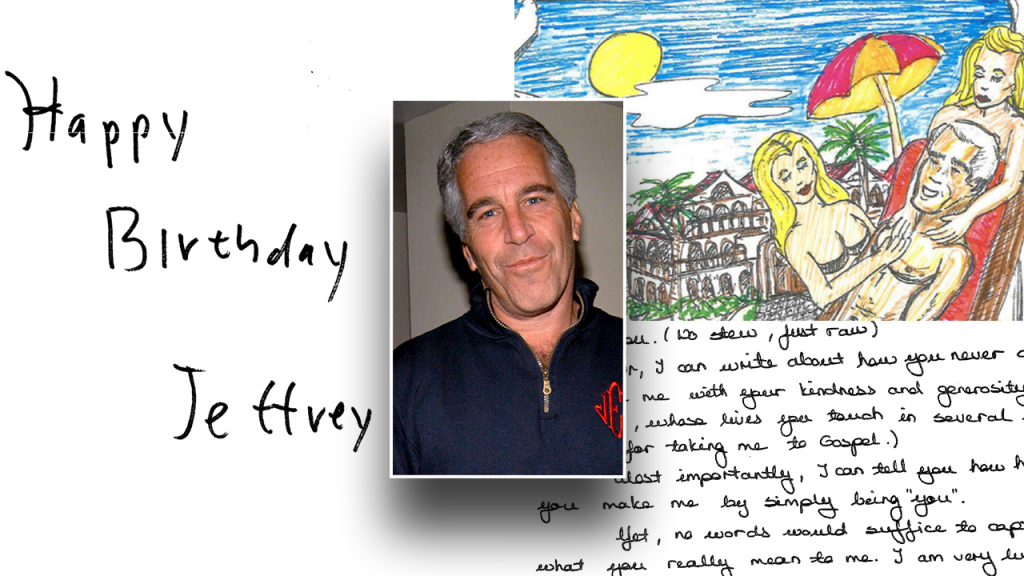 Happy
Birthday
Jeffrey
ou. (No stew, just raw)
, I can write about how you never
me with your kindness and generosity
, whose lives you touch in several
for taking me to Gospel.)
Most importantly, I can tell you how h
you make me by simply being "you".
Yet, no words would suffice to cap
what you really mean to me. I am very lu